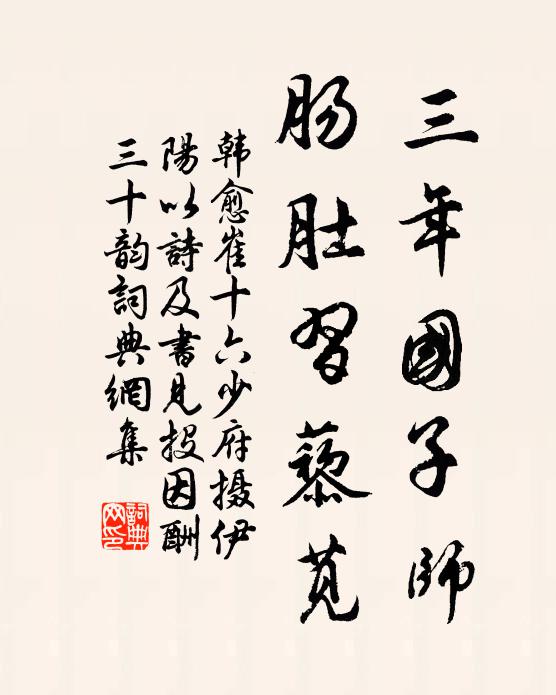 三年國子師
肠肚習藜莧
韩愈崔十六少府摄伊
陽以詩及書見投因酬
三十韵詞典網集
詞典
网印